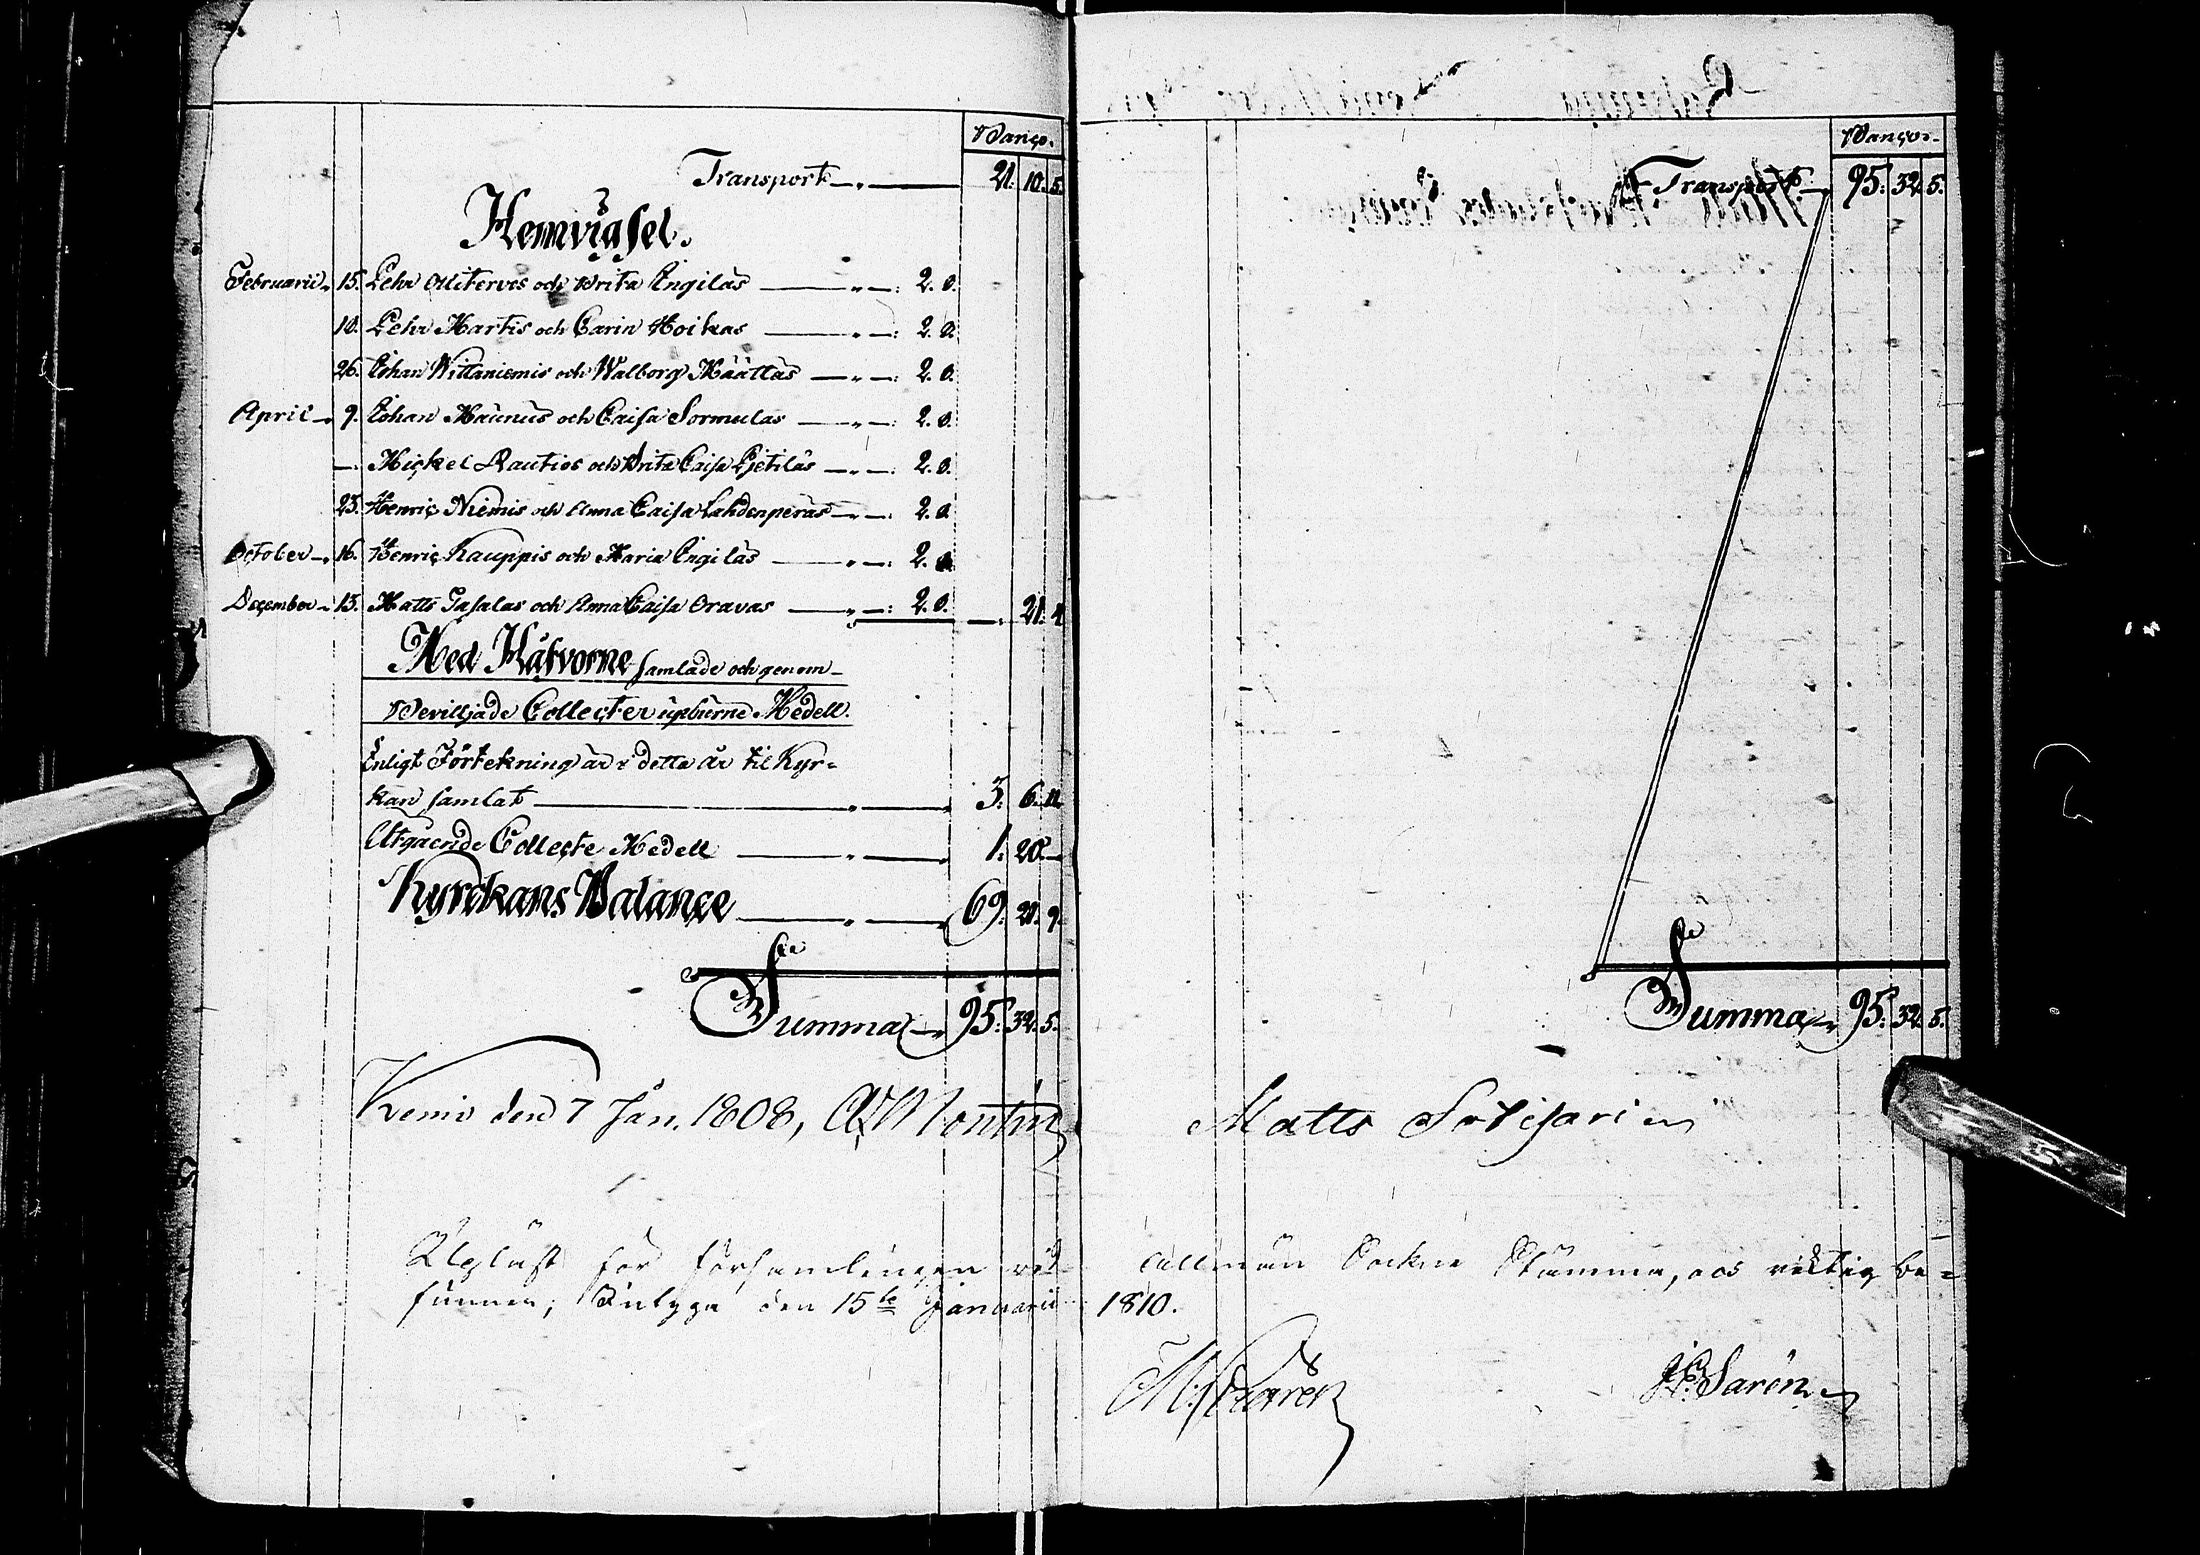 Banco.
Transport 21. 10. 5.
Hemvigsel.
Februarii 15. Pehr Miterves och Brita Engilas 2. 8.
10. Pehr Martis och Carin Hoikas 2. 8.
26. Johan Wittaniemis och Walborg Määttas 2. 8.
April 9. Johan Maunus och Caisa Sormulas 2. 8.
— Mickel Rauties och Brita Caisa Pietiläs 2. 8.
23. Henric Niemis och Anna Caisa Lahdenperas 2. 8.
October 16. Henric Kauppis och Maria Engilas 2. 8.
December 13. Matts Jasalas och Anna Caisa Oravas 2. 8. — 21. 4.
Med Håfvorne samlade och genom
Bevilljade Collecter upburne Medell.
Enligt Förtekning är i detta år til Kyr-
kan samlat 3. 6. 11.
Utgående Collecte Medell 1. 20. —
Kyrckans Balance 69. 21. 9.
Summa 95. 32. 5.
Kemi den 7 Jan. 1808,
Bancor.
Transport 95. 32. 5.
Summa 95. 32. 5.
Matts
Upläst för församlingen vid allmän Sockne Stämma, och riktig be-
funnen, Intyga den 15de Januarii 1810.